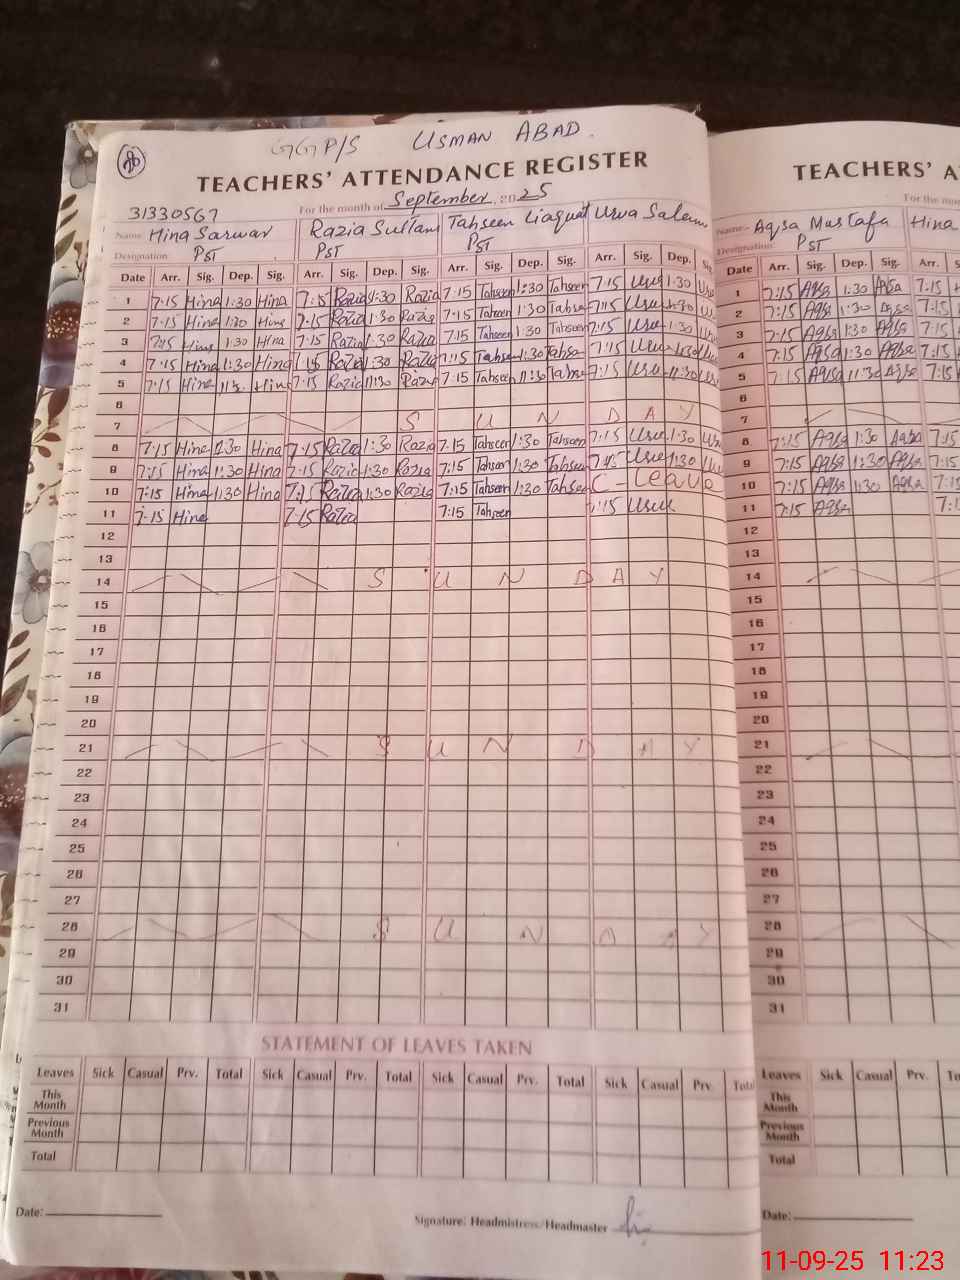 GGP/S USMAN ABAD.
TEACHERS' ATTENDANCE REGISTER
For the month of September 2025
31330567
Name Hina Sarwar Razia Sultan Tahseen Liaquat Urwa Saleem
Designation PST PST PST
Date Arr. Sig. Dep. Sig. Arr. Sig. Dep. Sig. Arr. Sig. Dep. Sig. Arr. Sig. Dep. Sig.
1 7:15 Hina 1:30 Hina 7:15 Razia 1:30 Razia 7:15 Tahseen 1:30 Tahseen 7:15 1:30
2 7:15 Hina 1:30 Hina 7:15 Razia 1:30 Razia 7:15 Tahseen 1:30 Tahseen 7:15 1:30
3 7:15 Hina 1:30 Hina 7:15 Razia 1:30 Razia 7:15 Tahseen 1:30 Tahseen 7:15 1:30
4 7:15 Hina 1:30 Hina 7:15 Razia 1:30 Razia 7:15 Tahseen 1:30 Tahseen 7:15 1:30
5 7:15 Hina 11:30 Hina 7:15 Razia 11:30 Razia 7:15 Tahseen 11:30 Tahseen 7:15 11:30
6
7 S U N D A Y
8 7:15 Hina 1:30 Hina 7:15 Razia 1:30 Razia 7:15 Tahseen 1:30 Tahseen 7:15 1:30
9 7:15 Hina 1:30 Hina 7:15 Razia 1:30 Razia 7:15 Tahseen 1:30 Tahseen 7:15 1:30
10 7:15 Hina 1:30 Hina 7:15 Razia 1:30 Razia 7:15 Tahseen 1:30 Tahseen C-Leave
11 7:15 Hina 7:15 Razia 7:15 Tahseen 7:15
12
13
14 S U N D A Y
15
16
17
18
19
20
21 S U N D A Y
22
23
24
25
26
27
28 S U N D A Y
29
30
31
STATEMENT OF LEAVES TAKEN
Leaves Sick Casual Prv. Total Sick Casual Prv. Total Sick Casual Prv. Total Sick Casual Prv.
This Month
Previous Month
Total
Date:
Signature: Headmistress/Headmaster
TEACHERS'
For the
Name Aqsa Mustafa Hina
Designation PST
Date Arr. Sig. Dep. Sig. Arr.
1 7:15 Aqsa 1:30 Aqsa 7:15
2 7:15 Aqsa 1:30 Aqsa 7:15
3 7:15 Aqsa 1:30 Aqsa 7:15
4 7:15 Aqsa 1:30 Aqsa 7:15
5 7:15 Aqsa 11:30 Aqsa 7:15
6
7
8 7:15 Aqsa 1:30 Aqsa 7:15
9 7:15 Aqsa 1:30 Aqsa 7:15
10 7:15 Aqsa 1:30 Aqsa 7:15
11 7:15 Aqsa
12
13
14
15
16
17
18
19
20
21
22
23
24
25
26
27
28
29
30
31
Leaves Sick Casual Prv.
This Month
Previous Month
Total
Date:
11-09-25 11:23